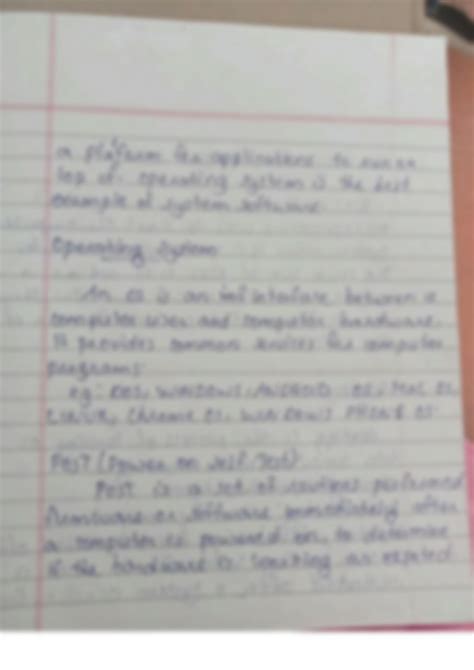 a platform for applications to run on
top of. operating system is the best
example of system software.
Operating System
An OS is an interface between a
computer user and computer hardware.
It provides common services for computer
programs.
eg: DOS, WINDOWS, ANDROID OS, MAC OS,
LINUX, Chrome OS, WINDOWS PHONE OS.
POST (Power on self Test)
POST is a set of routines performed
firmware or software immediately after
a computer is powered on, to determine
if the hardware is working as expected.